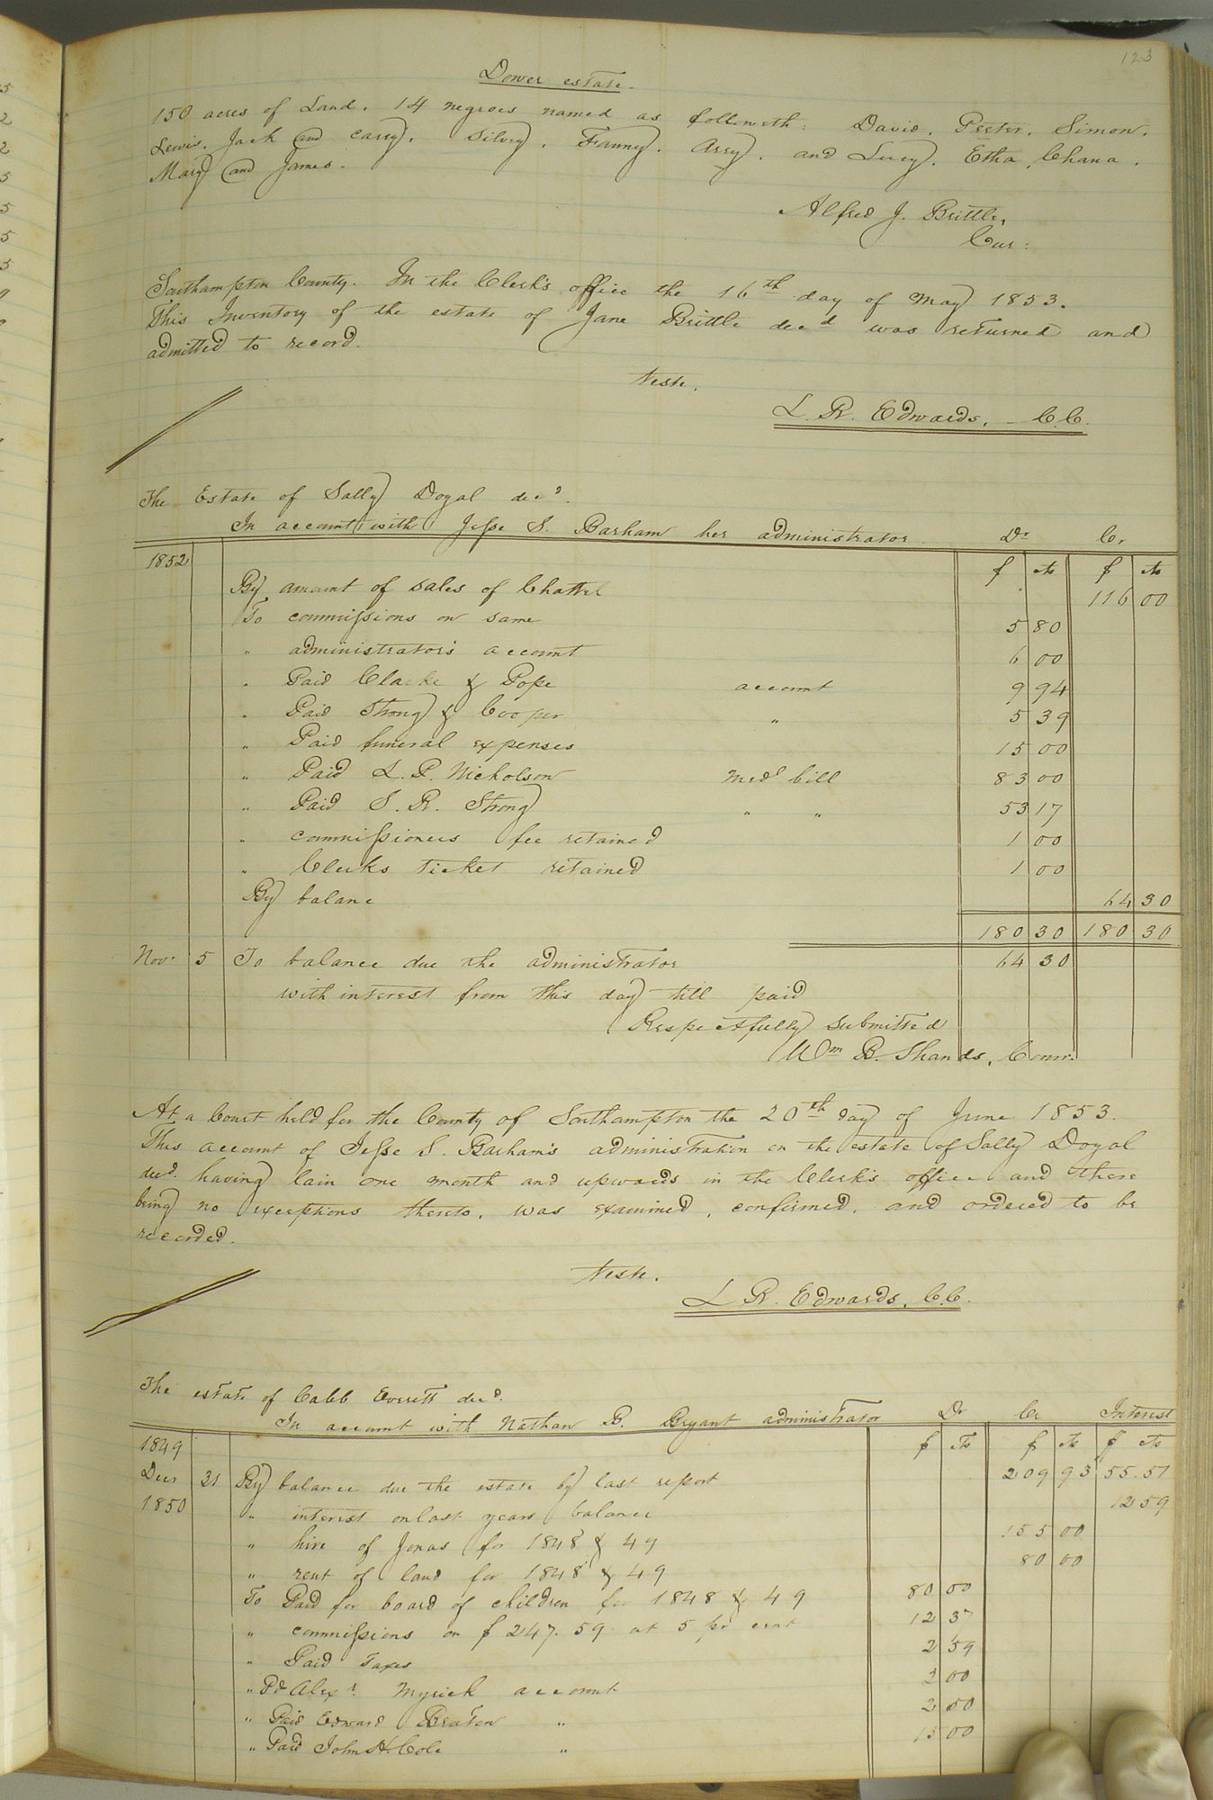 123
Dower estate.
150 acres of Land. 14 negroes named as followeth: David. Peeter. Simon.
Lewis. Jack and Carry. Silvy. Fanny. Assy. and Lucy. Etha Chana.
Mary and James.
Alfred J. Brittle,
Cur:
Southampton County. In the Clerk's office the 16th day of May 1853.
This Inventory of the estate of Jane Brittle decd was returned and
admitted to record.
Teste.
L. R. Edwards, C.C.
The Estate of Sally Doyal decd.
In account with Jesse S. Barham her administrator Dr Cr
1852 $ cts $ cts
By amount of sales of Chattel 116 00
To commissions on same 5 80
" administrator's account 6 00
" Paid Clarke & Pope account 9 94
" Paid Strong & Cooper " 5 39
" Paid funeral expenses 15 00
" Paid L. P. Nicholson Medl bill 83 00
" Paid S. R. Strong " " 53 17
" commissioners fee retained 1 00
" Clerks ticket retained 1 00
By balanc 64 30
180 30 180 30
Novr 5 To balance due the administrator 64 30
with interest from this day till paid
Respectfully submitted
Wm B. Shands, Comr.
At a Court held for the County of Southampton the 20th day of June 1853.
This account of Jesse S. Barham's administration on the estate of Sally Doyal
decd. having lain one month and upwards in the Clerk's office and there
being no exceptions thereto, was examined, confirmed, and ordered to be
recorded.
Teste.
L R. Edwards, C.C.
The estate of Caleb Everett decd.
In account with Nathan B. Bryant administrator Dr Cr Interest
1849 $ cts $ cts $ cts
Decr 31 By balance due the estate by last report 209 93 55.57
1850 " interest on last years balance 12 59
" hire of Jonas for 1848 & 49 155 00
" rent of land for 1848 & 49 80 00
To Paid for board of children for 1848 & 49 80 00
" commissions on $247.59 at 5 pr cent 12 37
" Paid Taxes 2 59
" Pd Alexr Myrick account 2 00
" Paid Edward Beaton " 2 50
" Paid John H. Cole " 15 00